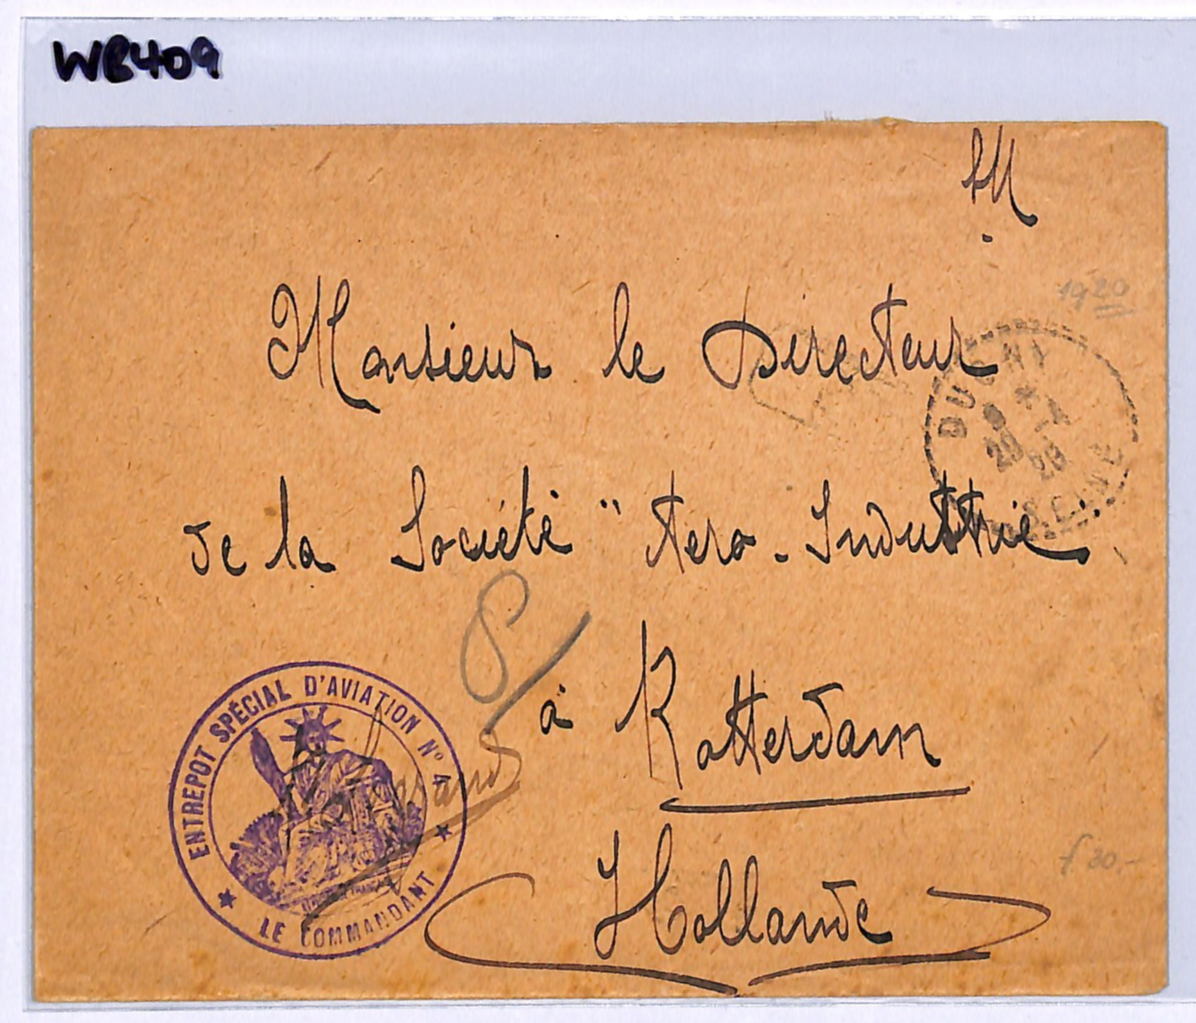 WB409
FM
1920
Monsieur le Directeur
BUGNY
20 20
MARNE
de la Société "Aero-Industrie".
à Rotterdam
ENTREPOT SPÉCIAL D'AVIATION Nº 4
LE COMMANDANT
f 20.-
Hollande